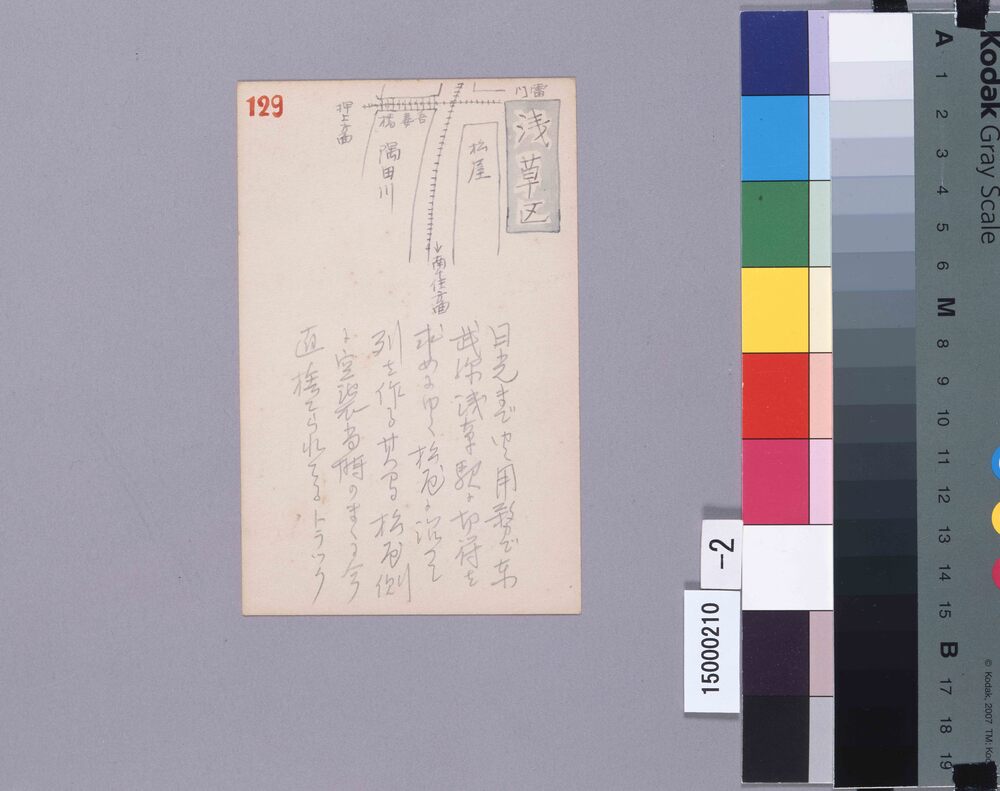 129
雷門
浅草区
松屋
吾妻橋
隅田川
押上方面
↓南千住方面
日光まで出る用務で東
武線浅草駅に切符を
求めにゆく松屋に沿って
列を作る其間松屋側
に空襲当時のまゝ今
迄捨てられてるトラック
15000210
-2
Kodak Gray Scale
A 1 2 3 4 5 6 M 8 9 10 11 12 13 14 15 B 17 18 19
© Kodak, 2007 TM: